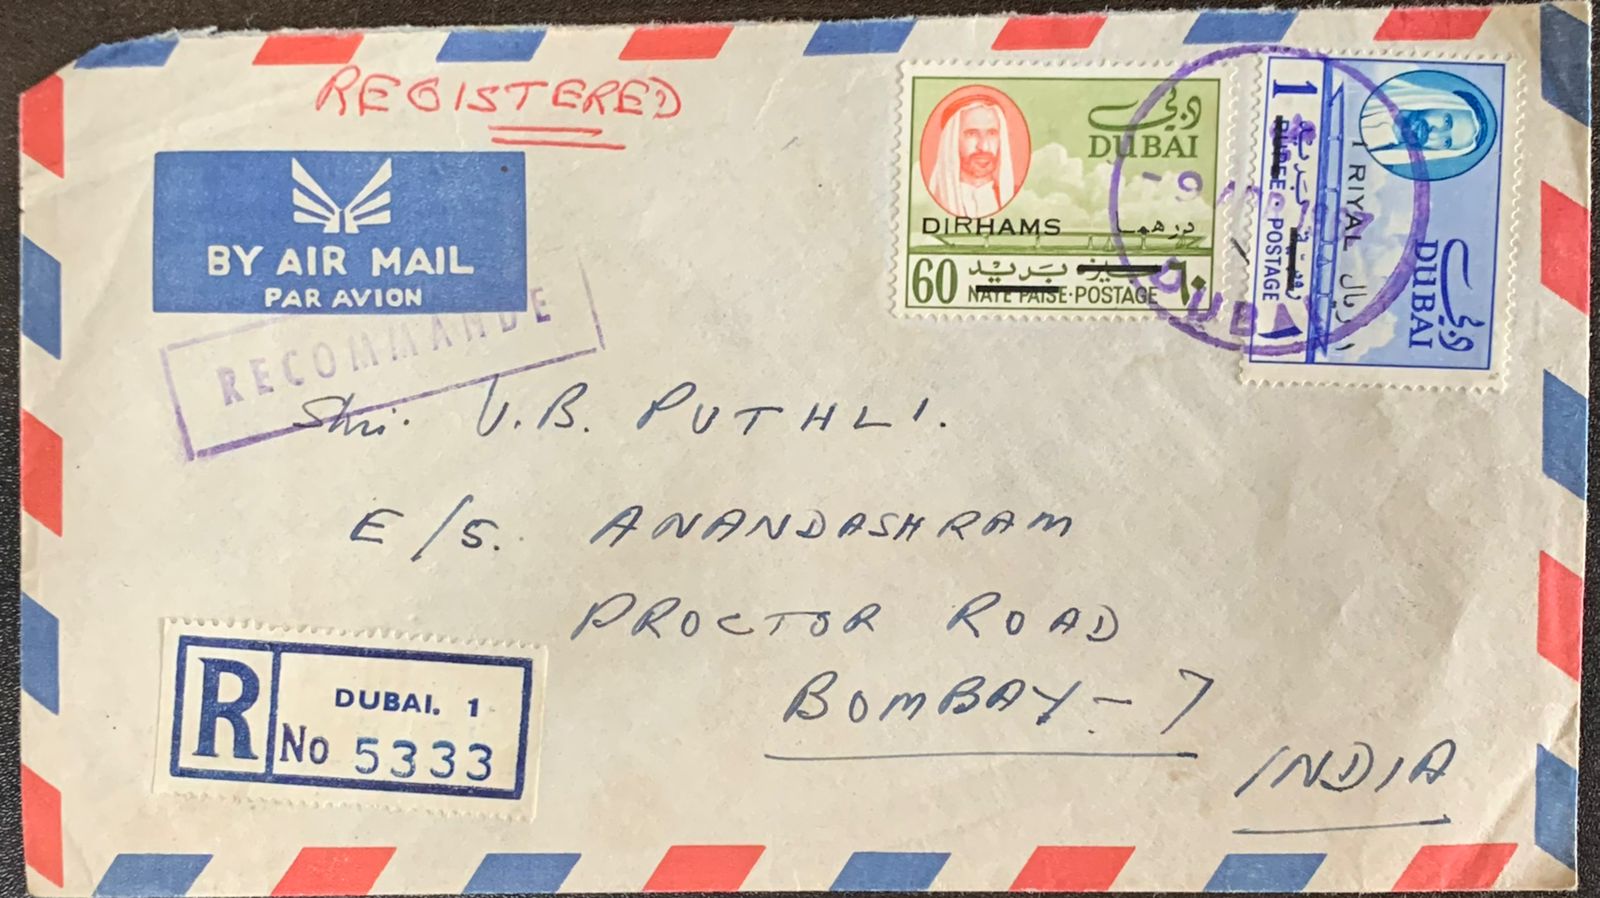 REGISTERED
BY AIR MAIL
PAR AVION
RECOMMANDE
دبي
DUBAI
DIRHAMS درهما
60 بريد ٦٠
NAYE PAISE·POSTAGE
1 RUPEE·POSTAGE
1 RIYAL ١ ريال
دبي
DUBAI
DUBAI
Shri. V.B. PUTHLI.
E/5. ANANDASHRAM
PROCTOR ROAD
BOMBAY-7
INDIA
R
DUBAI. 1
No 5333